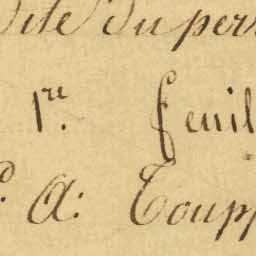 dite Duper
1re. feuil
P. A: Toupp